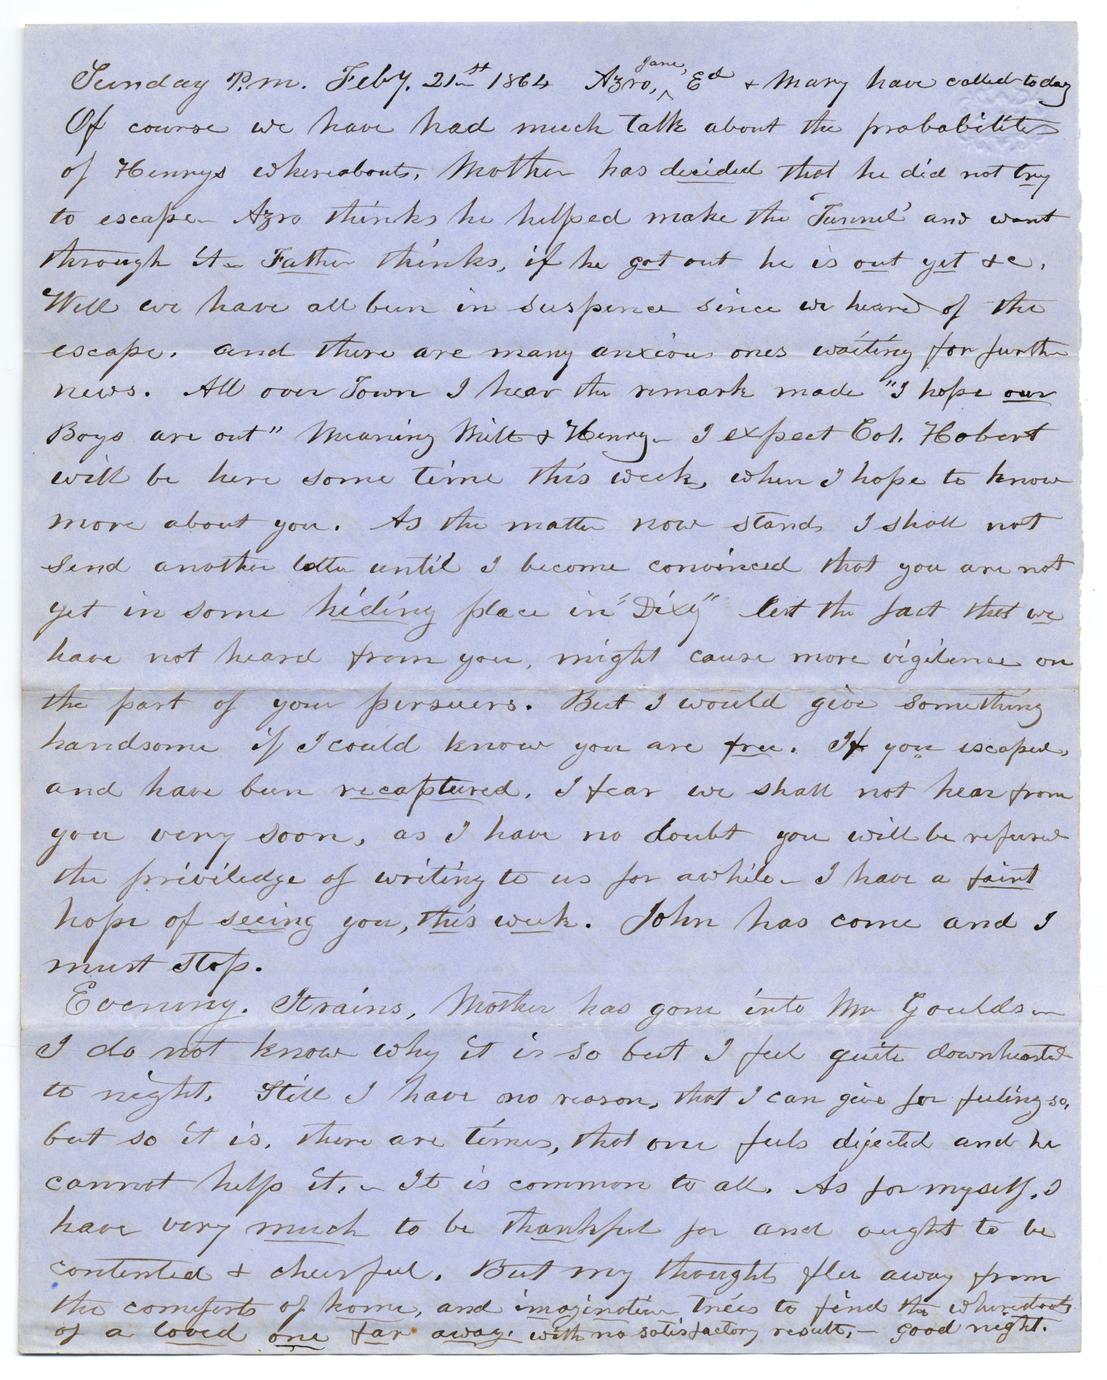 Sunday P.m. Feby. 21st 1864 Azro, Jane, Ed & Mary have called today
Of course we have had much talk about the probabilities
of Henrys whereabouts, Mother has decided that he did not try
to escape - Azro thinks he helped make the 'Tunnel' and went
through it - Father thinks, if he got out he is out yet &c.
Well we have all been in suspence since we heard of the
escape. and there are many anxious ones waiting for further
news. All over Town I hear the remark made "I hope our
Boys are out" Meaning Milt & Henry - I expect Col. Hobert
will be here some time this week, when I hope to know
more about you. As the matter now stands I shall not
send another letter until I become convinced that you are not
yet in some hideing place in "Dixy" lest the fact that we
have not heard from you, might cause more vigilence on
the part of your persuers. But I would give something
handsome if I could know you are free. If you escaped,
and have been recaptured, I fear we shall not hear from
you very soon, as I have no doubt you will be refused
the priviledge of writing to us for awhile - I have a faint
hope of seeing you, this week. John has come and I
must stop.
Evening. It rains, Mother has gone into Mr Goulds -
I do not know why it is so but I feel quite downhearted
to night. Still I have no reason, that I can give for feeling so,
but so it is. there are times, that one feels dejected and he
cannot help it. - It is common to all. As for myself, I
have very much to be thankful for and ought to be
contented & cheerful. But my thoughts flee away from
the comforts of home, and imagination trees to find the whereabouts
of a loved one far away. with no satisfactory result, - good night.